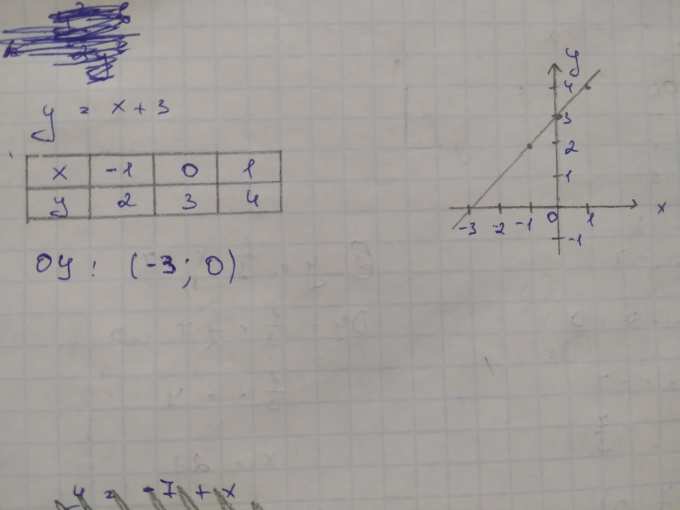 y = x + 3
x -1 0 1
y 2 3 4
Oy : (-3; 0)
y
4
3
2
1
-3 -2 -1 0 1 x
-1
y = -7 + x